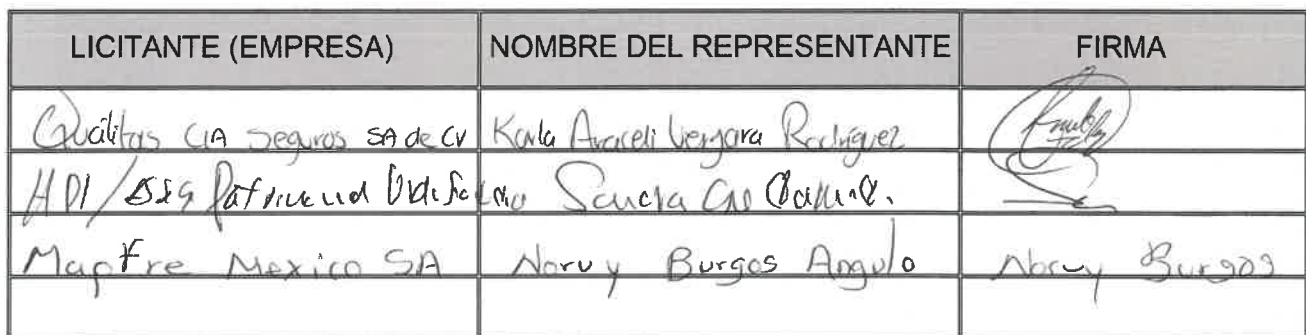 LICITANTE (EMPRESA) NOMBRE DEL REPRESENTANTE FIRMA
Quálitas CIA Seguros SA de CV Karla Araceli Vergara Rodríguez
HDI /
Mapfre Mexico SA Noruy Burgos Angulo Noruy Burgos